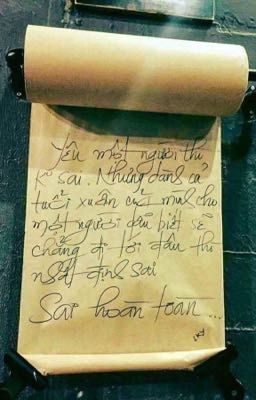 Yêu một người thì
k sai. Nhưng dành cả
tuổi xuân của mình cho
một người dẫu biết sẽ
chẳng đi tới đâu thì
nhất định sai
Sai hoàn toàn ...